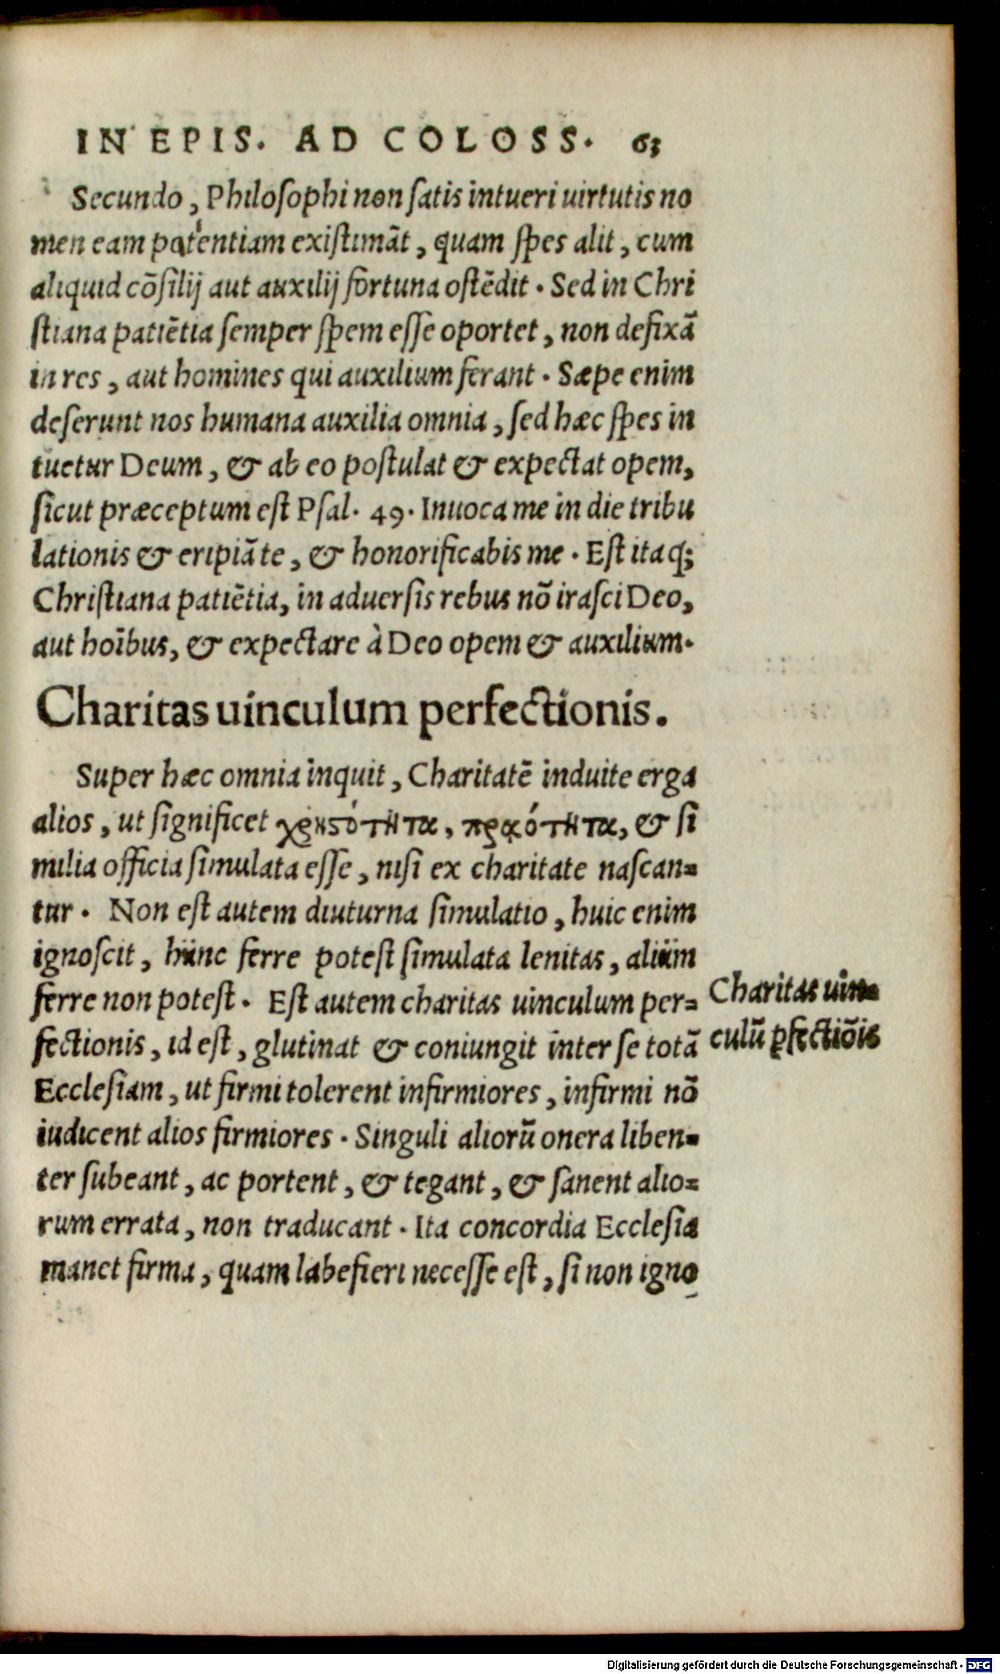 IN EPIS. AD COLOSS. 63
Secundo, Philosophi non satis intueri uirtutis no
men eam patientiam existimāt, quam spes alit, cum
aliquid cōsilij aut auxilij fortuna ostēdit. Sed in Chri
stiana patiētia semper spem esse oportet, non defixā
in res, aut homines qui auxilium ferant. Sæpe enim
deserunt nos humana auxilia omnia, sed hæc spes in
tuetur Deum, & ab eo postulat & expectat opem,
sicut præceptum est Psal. 49. Inuoca me in die tribu
lationis & eripiā te, & honorificabis me. Est itaq;
Christiana patiētia, in aduersis rebus nō irasci Deo,
aut hoībus, & expectare à Deo opem & auxilium.
Charitas uinculum perfectionis.
Super hæc omnia inquit, Charitatē induite erga
alios, ut significet χρηστότητα, πραότητα, & si
milia officia simulata esse, nisi ex charitate nascan=
tur. Non est autem diuturna simulatio, huic enim
ignoscit, hunc ferre potest simulata lenitas, alium
ferre non potest. Est autem charitas uinculum per=
fectionis, id est, glutinat & coniungit inter se totā
Ecclesiam, ut firmi tolerent infirmiores, infirmi nō
iudicent alios firmiores. Singuli aliorū onera liben=
ter subeant, ac portent, & tegant, & sanent alio=
rum errata, non traducant. Ita concordia Ecclesia
manet firma, quam labefieri necesse est, si non igno
Charitas uin=
culū ꝑfectiōis
Digitalisierung gefördert durch die Deutsche Forschungsgemeinschaft - DFG